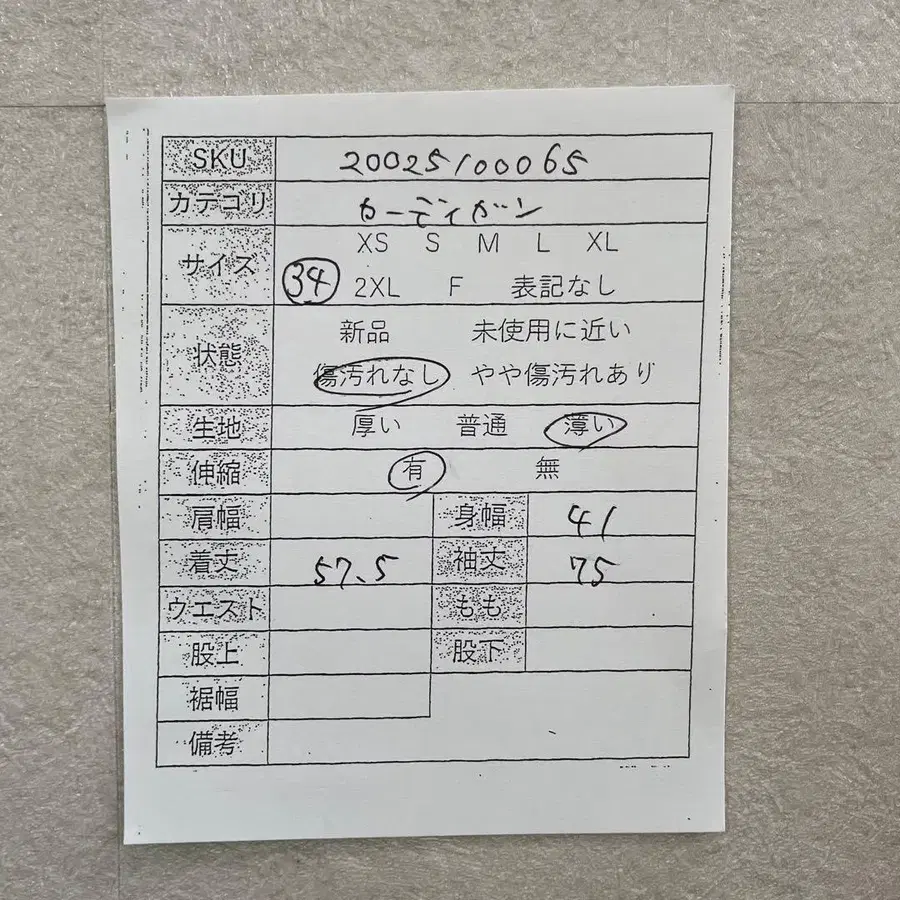 SKU 20025100065
カテゴリ カーディガン
サイズ XS S M L XL
34 2XL F 表記なし
状態 新品 未使用に近い
傷汚れなし やや傷汚れあり
生地 厚い 普通 薄い
伸縮 有 無
肩幅 身幅 41
着丈 57.5 袖丈 75
ウエスト もも
股上 股下
裾幅
備考